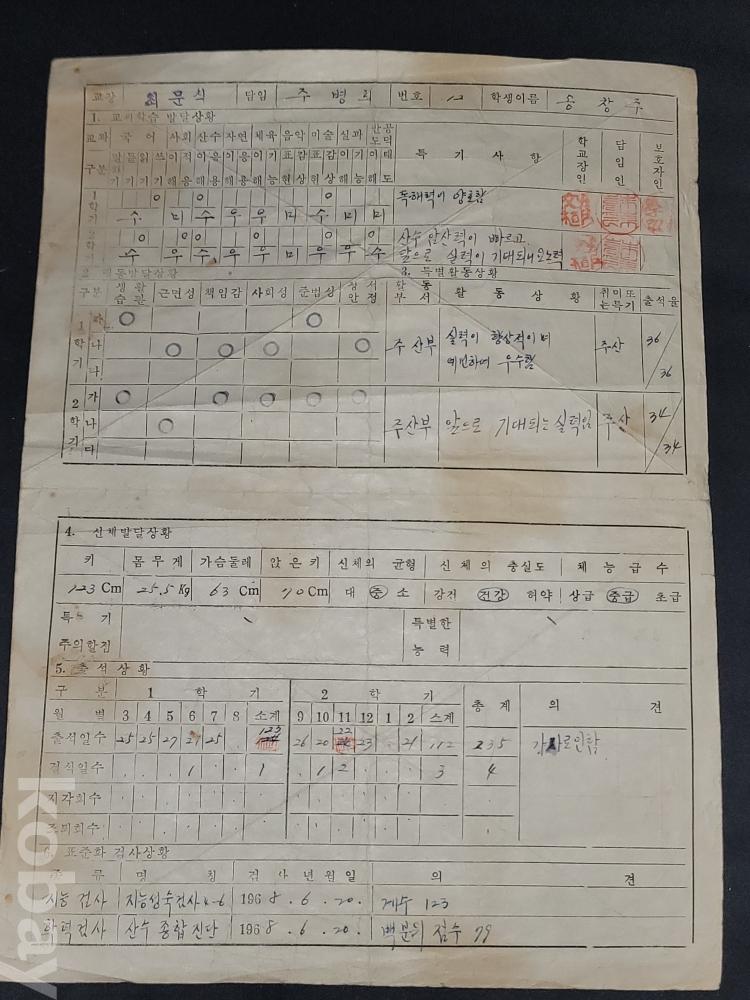 교장 최문식 담임 주병희 번호 12 학생이름 송창주
1. 교과학습발달상황
교과 국어 사회 산수 자연 체육 음악 미술 실과 반공도덕 특기사항 학교장인 담임인 보호자인
구분
1학기 수 미 수 우 우 미 수 미 미 독해력이 양호함
2학기 수 우 수 우 우 미 우 우 수 산수 암산력이 빠르고
앞으로 실력이 기대되나 요노력
2. 행동발달상황 3. 특별활동상황
구분 생활습관 근면성 책임감 사회성 준법성 정서안정 활동부서 활동상황 취미또는특기 출석율
1학기 가 나 다 주산부 실력이 향상적이며 주산 36/36
예민하며 우수함
2학기 가 나 다 주산부 앞으로 기대되는 실력임 주산 34/34
4. 신체발달상황
키 몸무게 가슴둘레 앉은키 신체의 균형 신체의 충실도 체능급수
123 Cm 25.5 Kg 63 Cm 70 Cm 대 중 소 강건 건강 허약 상급 중급 초급
특기 특별한
주의할점 능력
5. 출석상황
구분 1학기 2학기 총계 의견
월별 3 4 5 6 7 8 소계 9 10 11 12 1 2 소계
출석일수 25 25 27 21 25 123 26 20 22 23 21 112 235
결석일수 1 1 1 2 3 4
지각회수
조퇴회수
6. 표준화 검사상황
종류 명칭 검사년월일 의견
지능검사 지능성숙검사 4-6 1968.6.20. 지수 123
학력검사 산수 종합 진단 1968.6.20. 백분위 점수 79
kobay